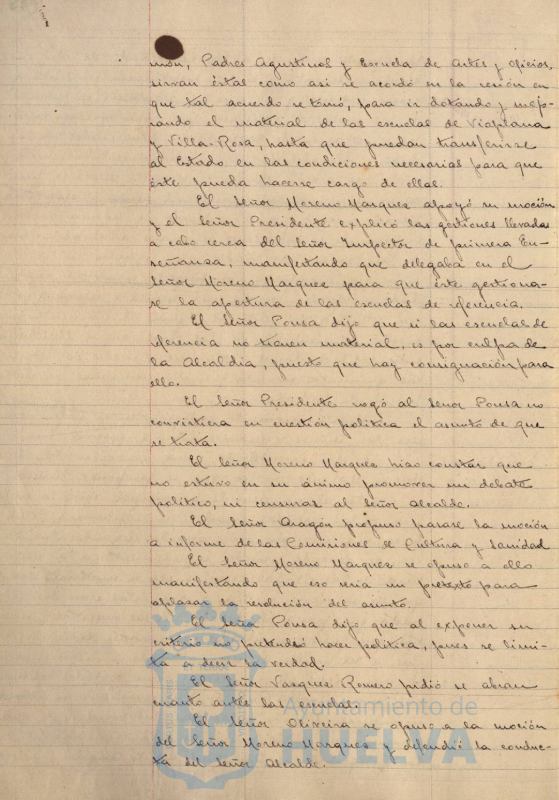 món, Padres Agustinos y Escuela de Artes y Oficios,
sirvan éstas como así se acordó en la sesión en
que tal acuerdo se tomó, para ir dotando y mejo-
rando el material de las escuelas de Viaplana
y Villa-Rosa, hasta que puedan transferirse
al Estado en las condiciones necesarias para que
éste pueda hacerse cargo de ellas.
El Señor Moreno Marquez apoyó su moción
y el Señor Presidente explicó las gestiones llevadas
a cabo cerca del Señor Inspector de primera En-
señanza, manifestando que delegaba en el
Señor Moreno Marquez para que éste gestiona-
se la apertura de las escuelas de referencia.
El Señor Pousa dijo que si las escuelas de
referencia no tienen material, es por culpa de
la Alcaldía, puesto que hay consignación para
ello.
El Señor Presidente rogó al Señor Pousa no
convirtiera en cuestión política el asunto de que
se trata.
El Señor Moreno Marquez hizo constar que
no estuvo en su ánimo promover un debate
político, ni censurar al Señor Alcalde.
El Señor Aragón propuso pasase la moción
a informe de las Comisiones de Cultura y Sanidad
El Señor Moreno Marquez se opuso a ello
manifestando que eso sería un pretexto para
aplazar la resolución del asunto.
El Señor Pousa dijo que al exponer su
criterio no pretendió hacer política, pues se limi-
ta a decir la verdad.
El Señor Vazquez Romero pidió se abran
cuanto antes las escuelas.
El Señor Oliveira se opuso a la moción
del Señor Moreno Marquez y defendió la conduc-
ta del Señor Alcalde.
Ayuntamiento de
HUELVA